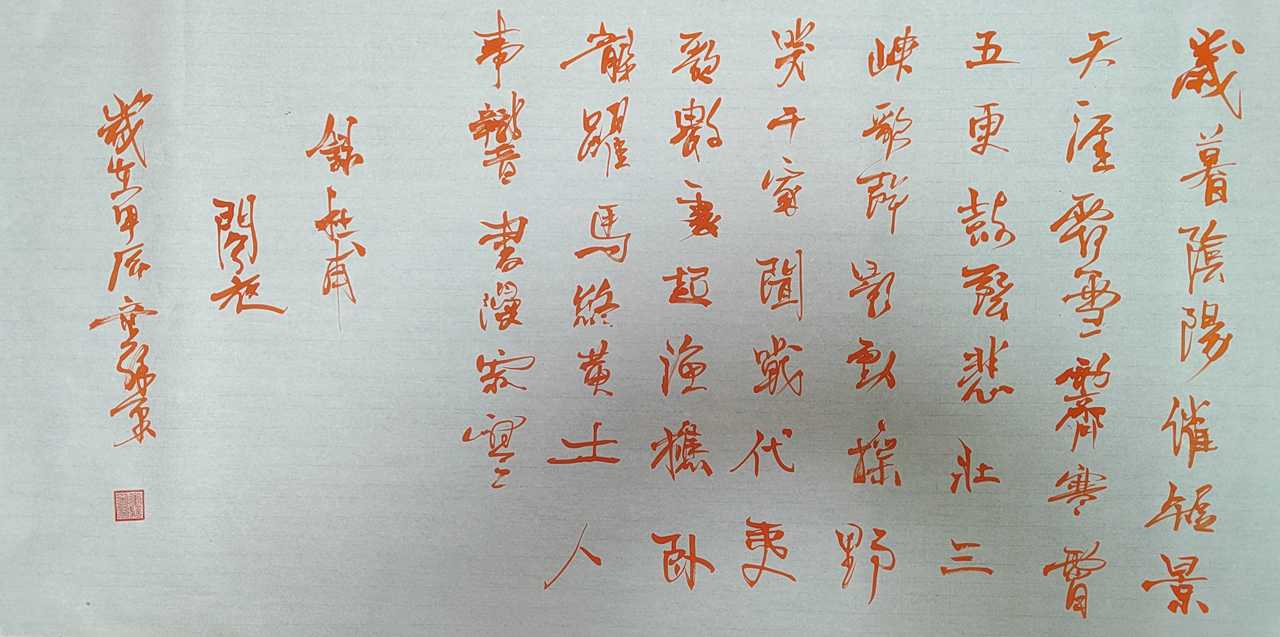 歲暮陰陽催短景
天涯霜雪霽寒霄
五更鼓聲悲壯三
峽影動搖野
哭千家聞戰代夷
歌數處起漁樵臥
龍躍馬終黃土人
事書漫寂寥
錄杜甫
閣夜
歲在甲辰